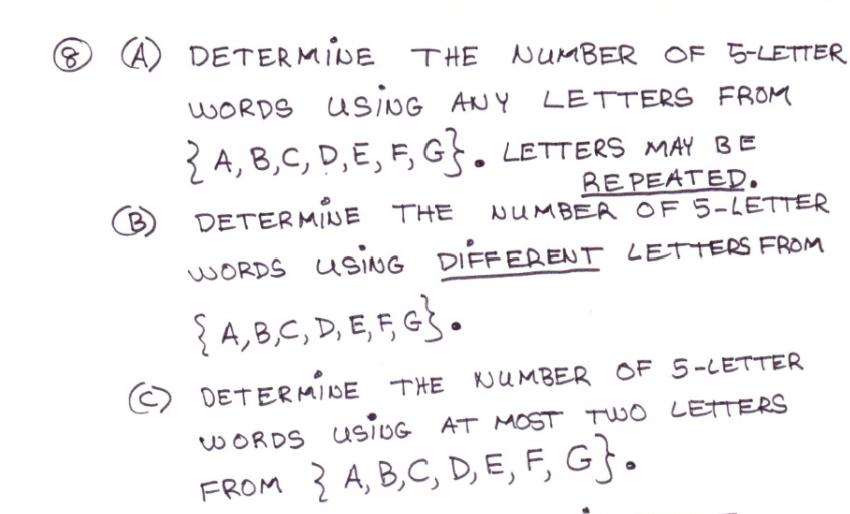 ⑧ Ⓐ DETERMINE THE NUMBER OF 5-LETTER
WORDS USING ANY LETTERS FROM
{A, B, C, D, E, F, G}. LETTERS MAY BE
REPEATED.
Ⓑ DETERMINE THE NUMBER OF 5-LETTER
WORDS USING DIFFERENT LETTERS FROM
{A, B, C, D, E, F, G}.
Ⓒ DETERMINE THE NUMBER OF 5-LETTER
WORDS USING AT MOST TWO LETTERS
FROM {A, B, C, D, E, F, G}.